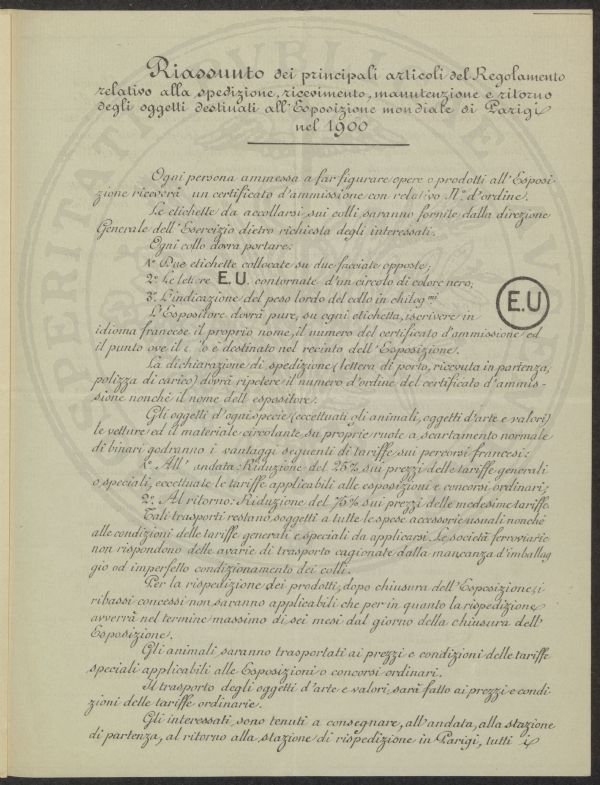 Riassunto dei principali articoli del Regolamento
relativo alla spedizione, ricevimento, manutenzione e ritorno
degli oggetti destinati all'Esposizione mondiale di Parigi
nel 1900
Ogni persona ammessa a far figurare opere o prodotti all'Esposi-
zione riceverà un certificato d'ammissione con relativo N.º d'ordine.
Le etichette da accollarsi sui colli saranno fornite dalla direzione
Generale dell'Esercizio dietro richiesta degli interessati.
Ogni collo dovrà portare:
1º Due etichette collocate su due facciate opposte;
2º Le lettere E.U. contornate d'un circolo di colore nero;
3º L'indicazione del peso lordo del collo in chilog.mi
E.U
L'Espositore dovrà pure, su ogni etichetta, iscrivere in
idioma francese il proprio nome, il numero del certificato d'ammissione ed
il punto ove il è destinato nel recinto dell'Esposizione.
La dichiarazione di spedizione (lettera di porto, ricevuta in partenza,
polizza di carico) dovrà ripetere il numero d'ordine del certificato d'ammis-
sione nonchè il nome dell espositore.
Gli oggetti d'ogni specie (eccettuati gli animali, oggetti d'arte e valori)
le vetture ed il materiale circolante su proprie ruote a scartamento normale
di binari godranno i vantaggi seguenti di tariffe sui percorsi francesi:
1º All'andata: Riduzione del 25% sui prezzi delle tariffe generali
o speciali, eccettuate le tariffe applicabili alle esposizioni e concorsi ordinari;
2º Al ritorno: Riduzione del 75% sui prezzi delle medesime tariffe
Tali trasporti restano soggetti a tutte le spese accessorie usuali nonchè
alle condizioni delle tariffe generali e speciali da applicarsi. Le società ferroviarie
non rispondono delle avarie di trasporto cagionate dalla mancanza d'imballag
gio od imperfetto condizionamento dei colli.
Per la rispedizione dei prodotti, dopo chiusura dell'Esposizione, i
ribassi concessi non saranno applicabili che per in quanto la rispedizione
avverrà nel termine massimo di sei mesi dal giorno della chiusura dell'
Esposizione.
Gli animali saranno trasportati ai prezzi e condizioni delle tariffe
speciali applicabili alle Esposizioni o concorsi ordinari.
Il trasporto degli oggetti d'arte e valori, sarà fatto ai prezzi e condi-
zioni delle tariffe ordinarie.
Gli interessati, sono tenuti a consegnare, all'andata, alla stazione
di partenza, al ritorno alla stazione di rispedizione in Parigi, tutti i